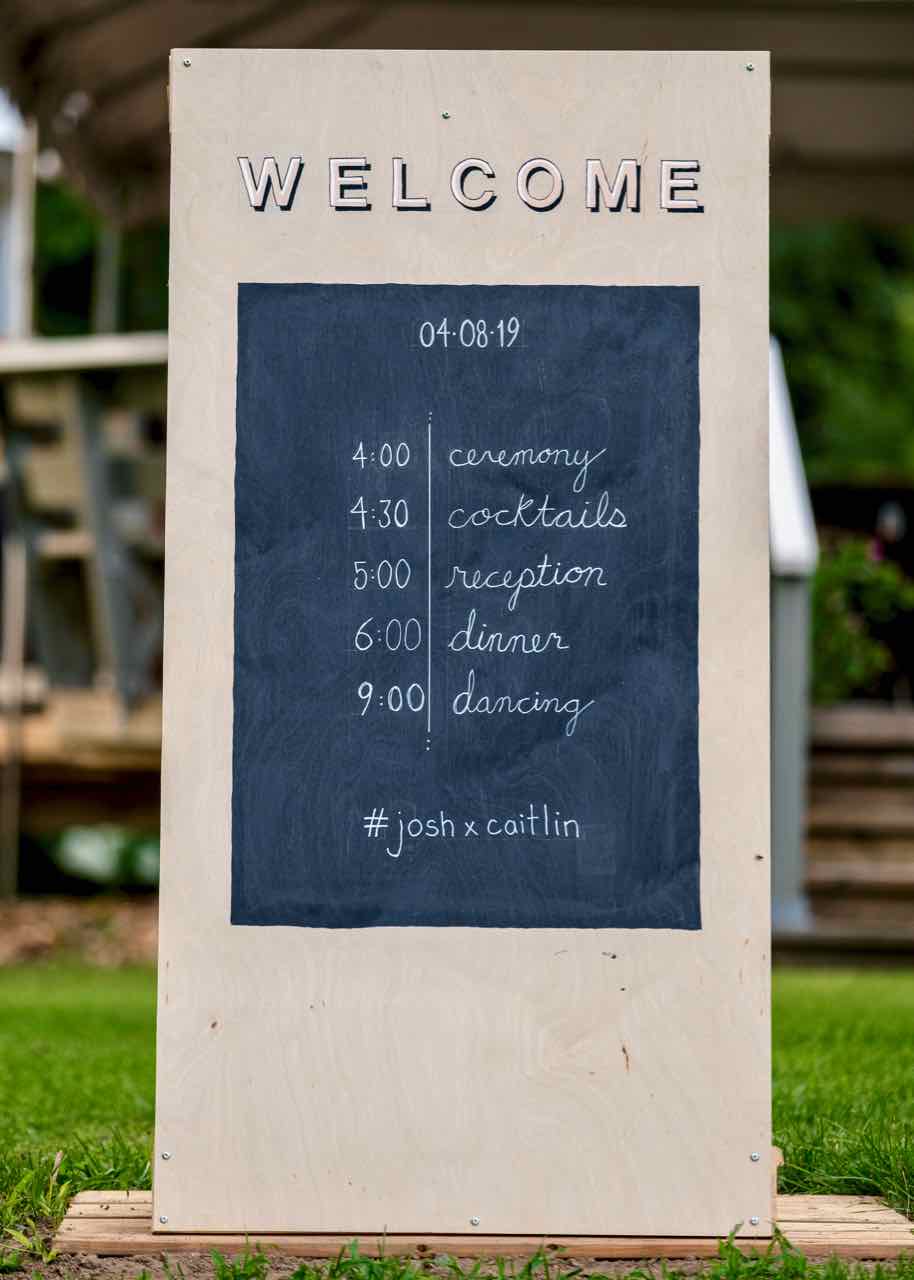 WELCOME
04·08·19
4:00 ceremony
4:30 cocktails
5:00 reception
6:00 dinner
9:00 dancing
#josh x caitlin